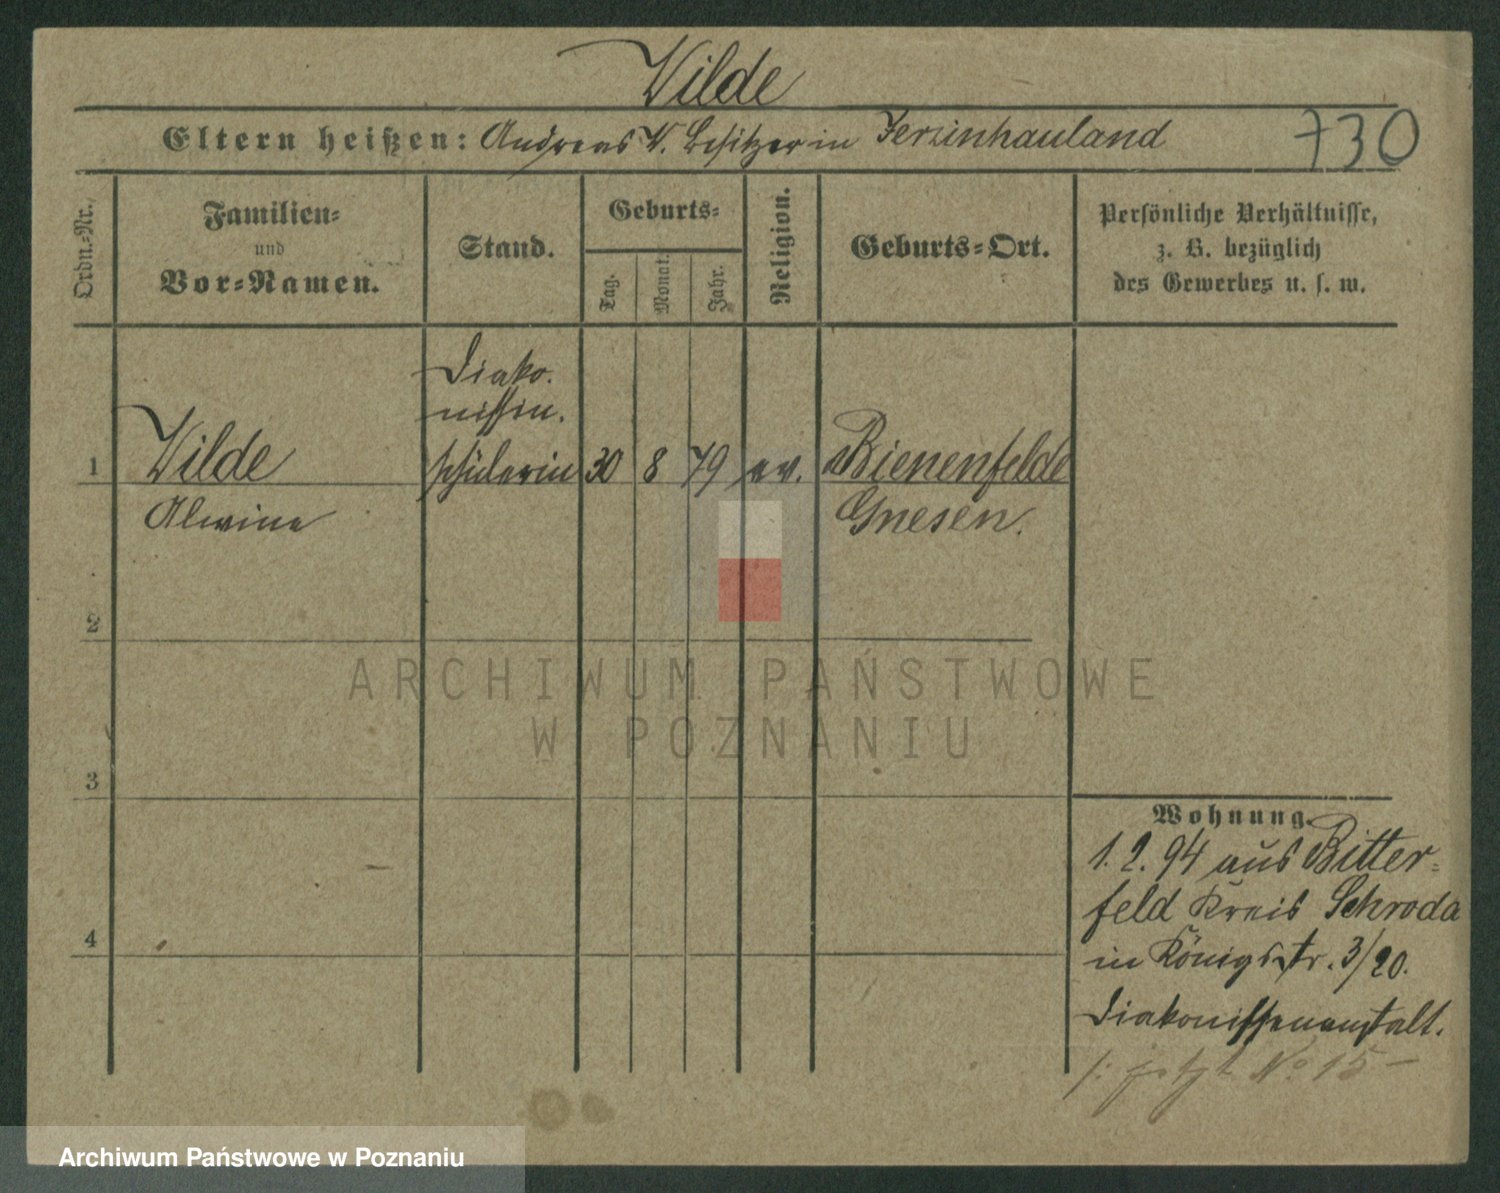 Wilde
Eltern heißen: Andreas W. Besitzer in Jerzinhauland
730
Ordn.-Nr.
Familien-
und
Vor-Namen.
Stand.
Geburts-
Tag.
Monat.
Jahr.
Religion.
Geburts-Ort.
Persönliche Verhältnisse,
z. B. bezüglich
des Gewerbes u. s. w.
Diako-
nissin.
1 Wilde schülerin 30 8 79 ev. Bienenfelde
Alwine Gnesen.
2
3
4
Wohnung.
1. 2. 94 aus Bitter-
feld Kreis Schroda
in Königstr. 3/20.
Diakonissenanstalt.
jetzt No 15
ARCHIWUM PAŃSTWOWE
W POZNANIU
Archiwum Państwowe w Poznaniu